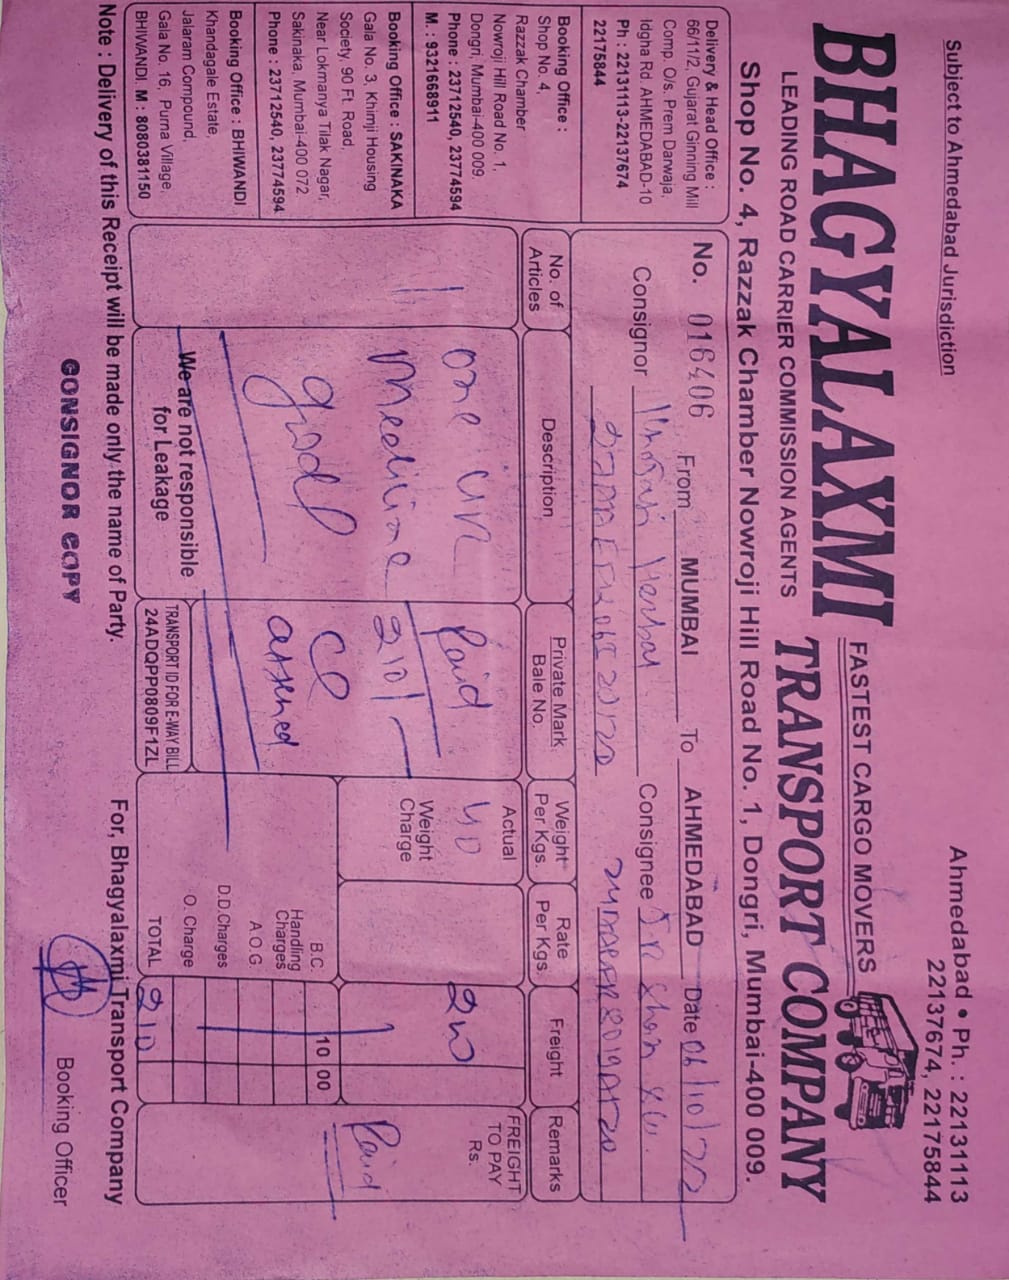 Subject to Ahmedabad Jurisdiction
Ahmedabad • Ph. : 22131113
22137674, 22175844
BHAGYALAXMI
FASTEST CARGO MOVERS
LEADING ROAD CARRIER COMMISSION AGENTS
TRANSPORT COMPANY
Shop No. 4, Razzak Chamber Nowroji Hill Road No. 1, Dongri, Mumbai-400 009.
Delivery & Head Office :
66/11/2, Gujarat Ginning Mill
Comp. O/s. Prem Darwaja,
Idgha Rd. AHMEDABAD-10
Ph : 22131113-22137674
22175844
Booking Office :
Shop No. 4,
Razzak Chamber
Nowroji Hill Road No. 1,
Dongri, Mumbai-400 009.
Phone : 23712540, 23774594
M. : 9321668911
Booking Office : SAKINAKA
Gala No. 3, Khimji Housing
Society, 90 Ft. Road,
Near Lokmanya Tilak Nagar,
Sakinaka, Mumbai-400 072
Phone : 23712540, 23774594
Booking Office : BHIWANDI
Khandagale Estate,
Jalaram Compound,
Gala No. 16, Purna Village,
BHIWANDI. M : 8080381150
No. 016406 From MUMBAI To AHMEDABAD Date 06/10/20
Consignor Herbal Consignee
No. of
Articles
Description
Private Mark
Bale No.
Weight
Per Kgs.
Rate
Per Kgs.
Freight
Remarks
1
one
medicine
good
Paid
210/-
Actual
40
Weight
Charge
FREIGHT
TO PAY
Rs.
Paid
B.C. 10 00
Handling
Charges
A.O.G.
D.D.Charges
O. Charge
TOTAL 210
We are not responsible
for Leakage
TRANSPORT ID FOR E-WAY BILL
24ADQPP0809F1ZL
Note : Delivery of this Receipt will be made only the name of Party.
For, Bhagyalaxmi Transport Company
CONSIGNOR COPY
Booking Officer